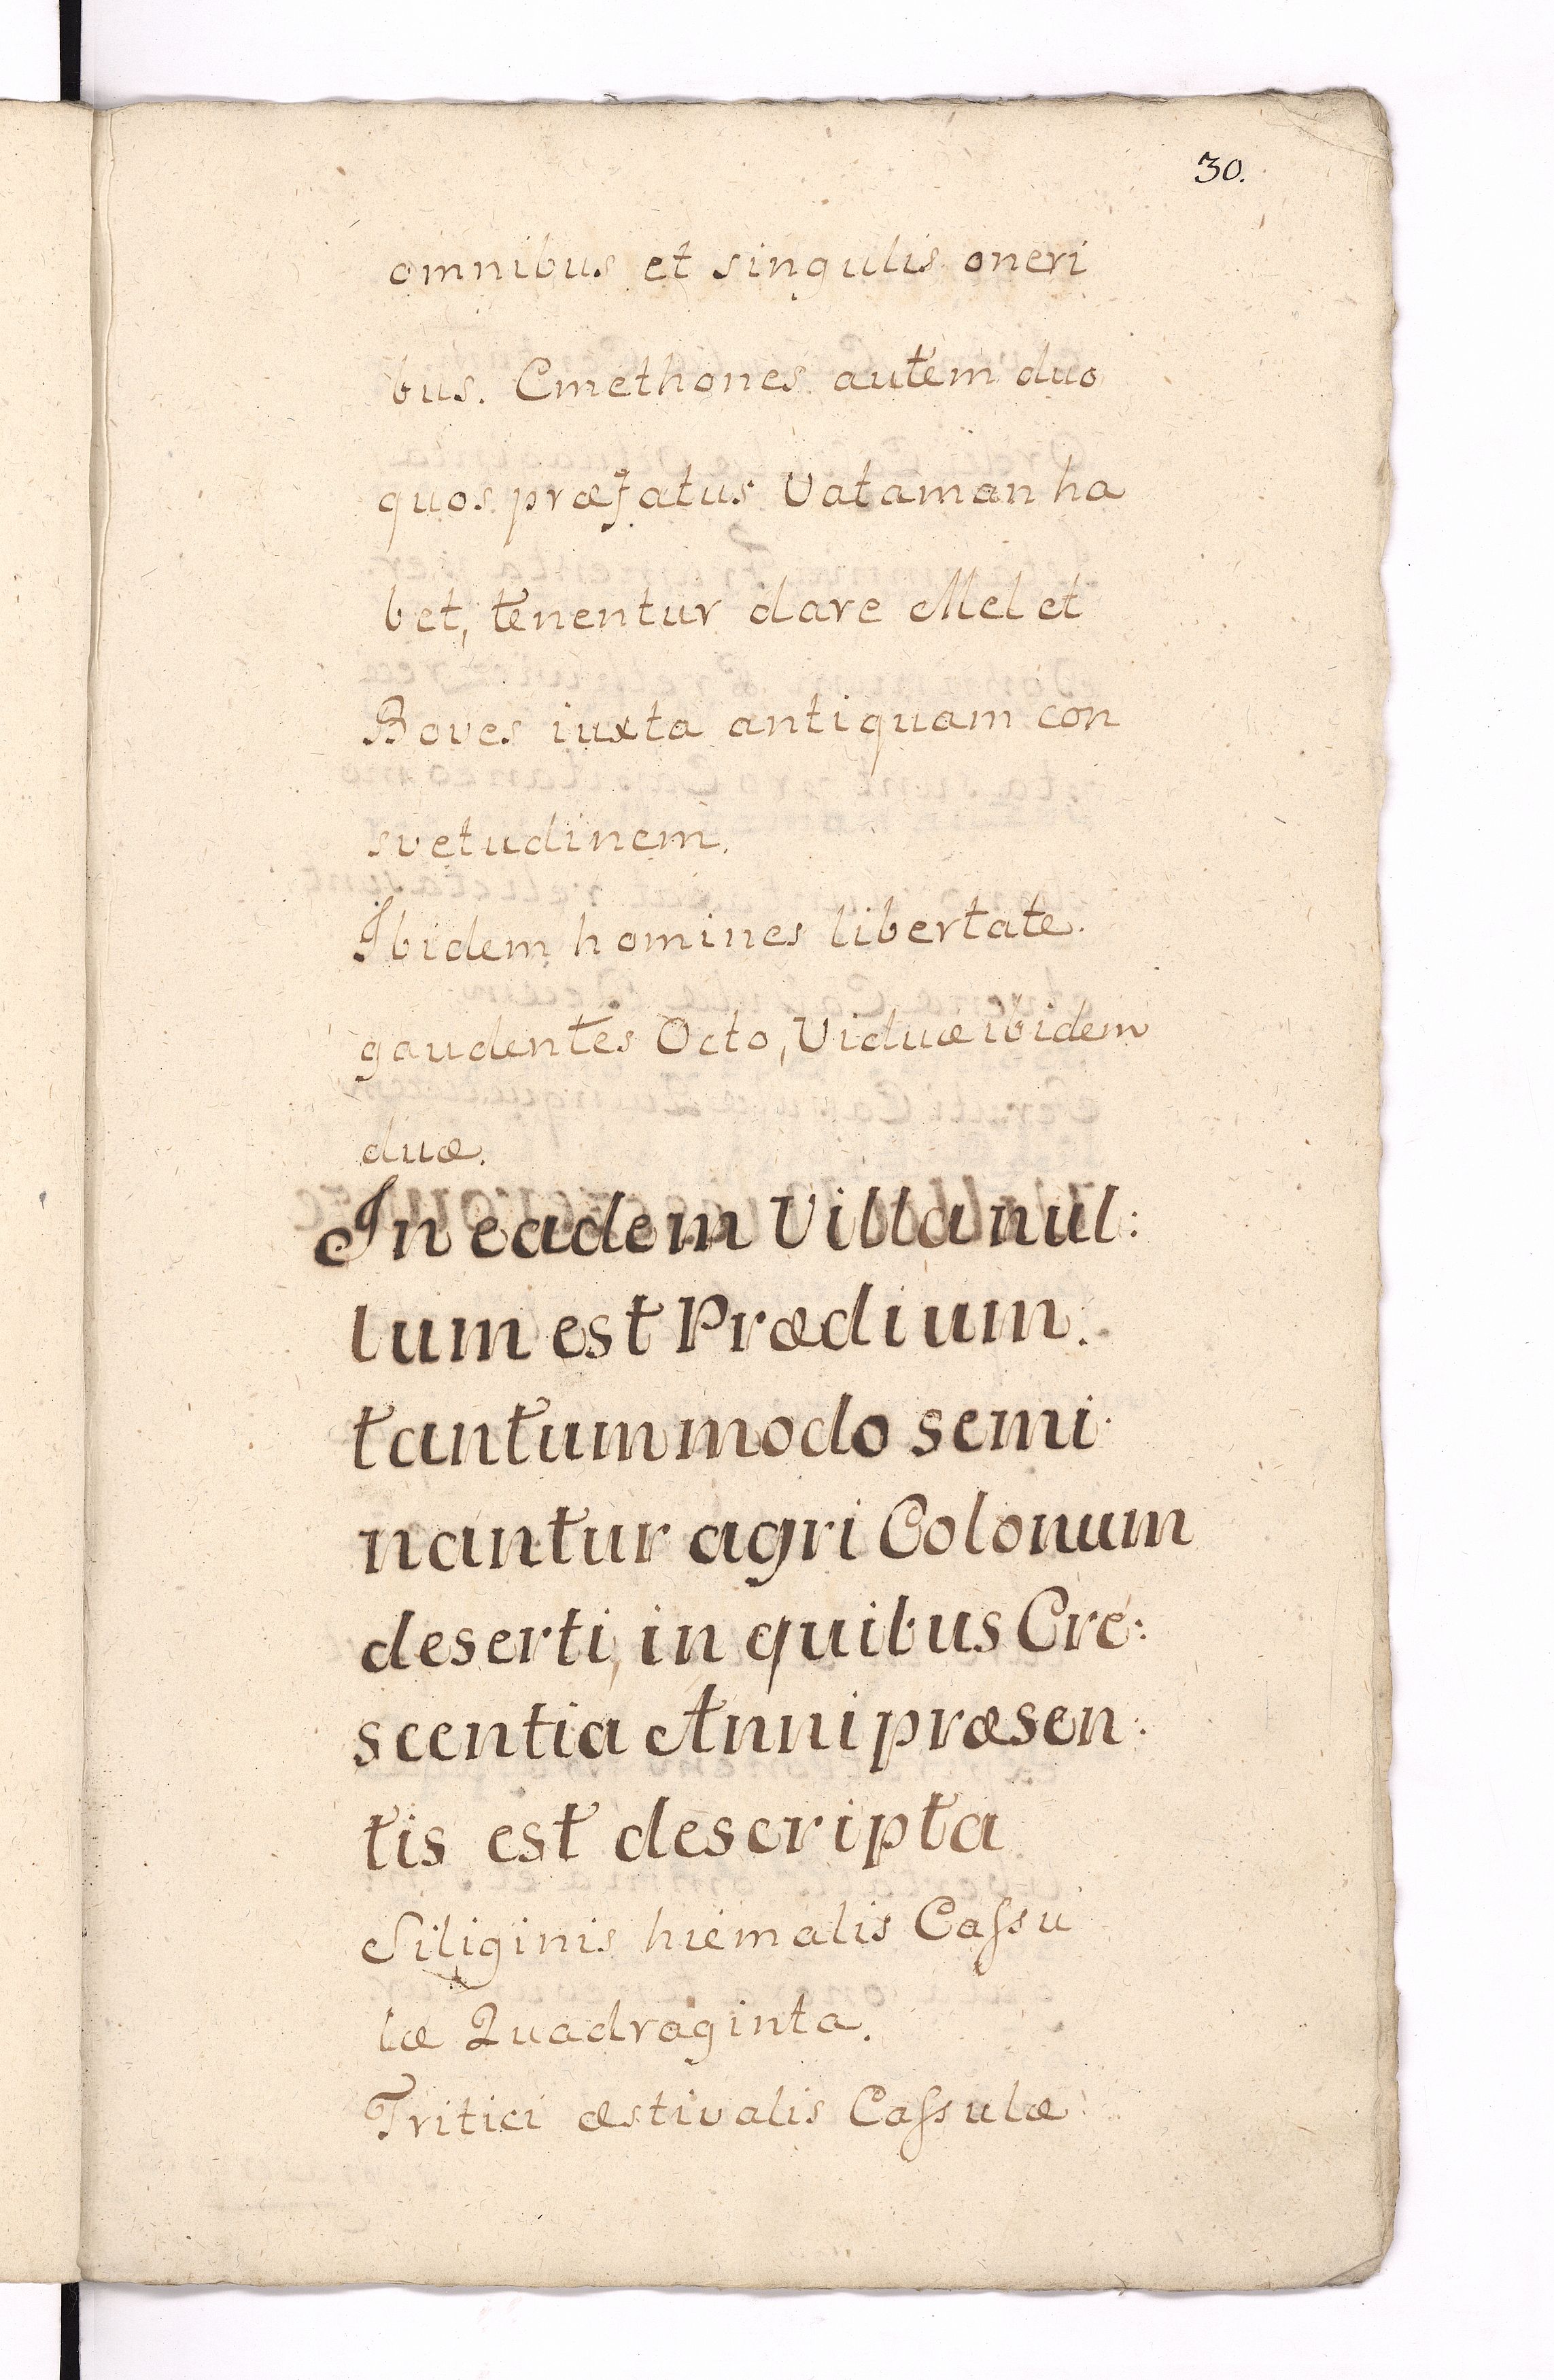 30.
omnibus et singulis oneri
bus. Cmethones autem duo
quos præfatus Vataman ha
bet, tenentur dare Mel et
Boves iuxta antiquam con
svetudinem.
Ibidem homines libertate.
gaudentes Octo, Viduæ ibidem
duæ.
In eadem Villa nul:
lum est Prædium.
tantummodo semi
nantur agri Colonum
deserti, in quibus Cre:
scentia Anni præsen:
tis est descripta
Siliginis hiemalis Caſsu
læ Quadraginta.
Tritici æstivalis Caſsulæ